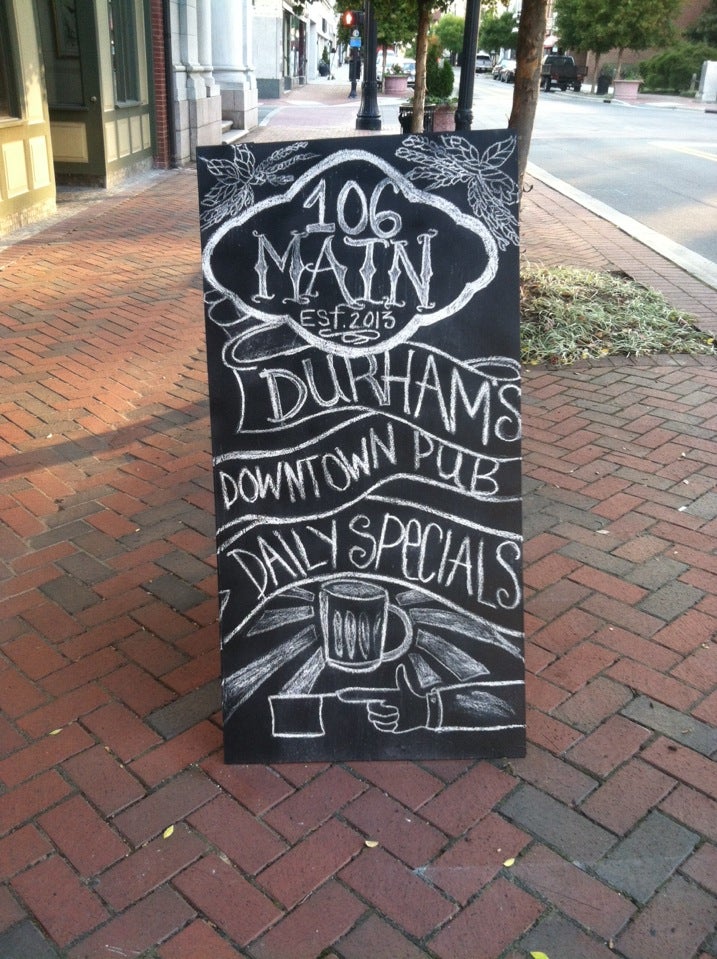 106
MAIN
EST. 2013
DURHAM'S
DOWNTOWN PUB
DAILY SPECIALS